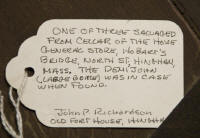 ONE OF THREE SALVAGED
FROM CELLAR OF THE HOWE
GENERAL STORE, HOBART'S
BRIDGE, NORTH ST, HINGHAM,
MASS. THE DEMIJOHN
(LARGE BOTTLE) WAS IN CASE
WHEN FOUND.
John P. Richardson
OLD FORT HOUSE, HINGHAM